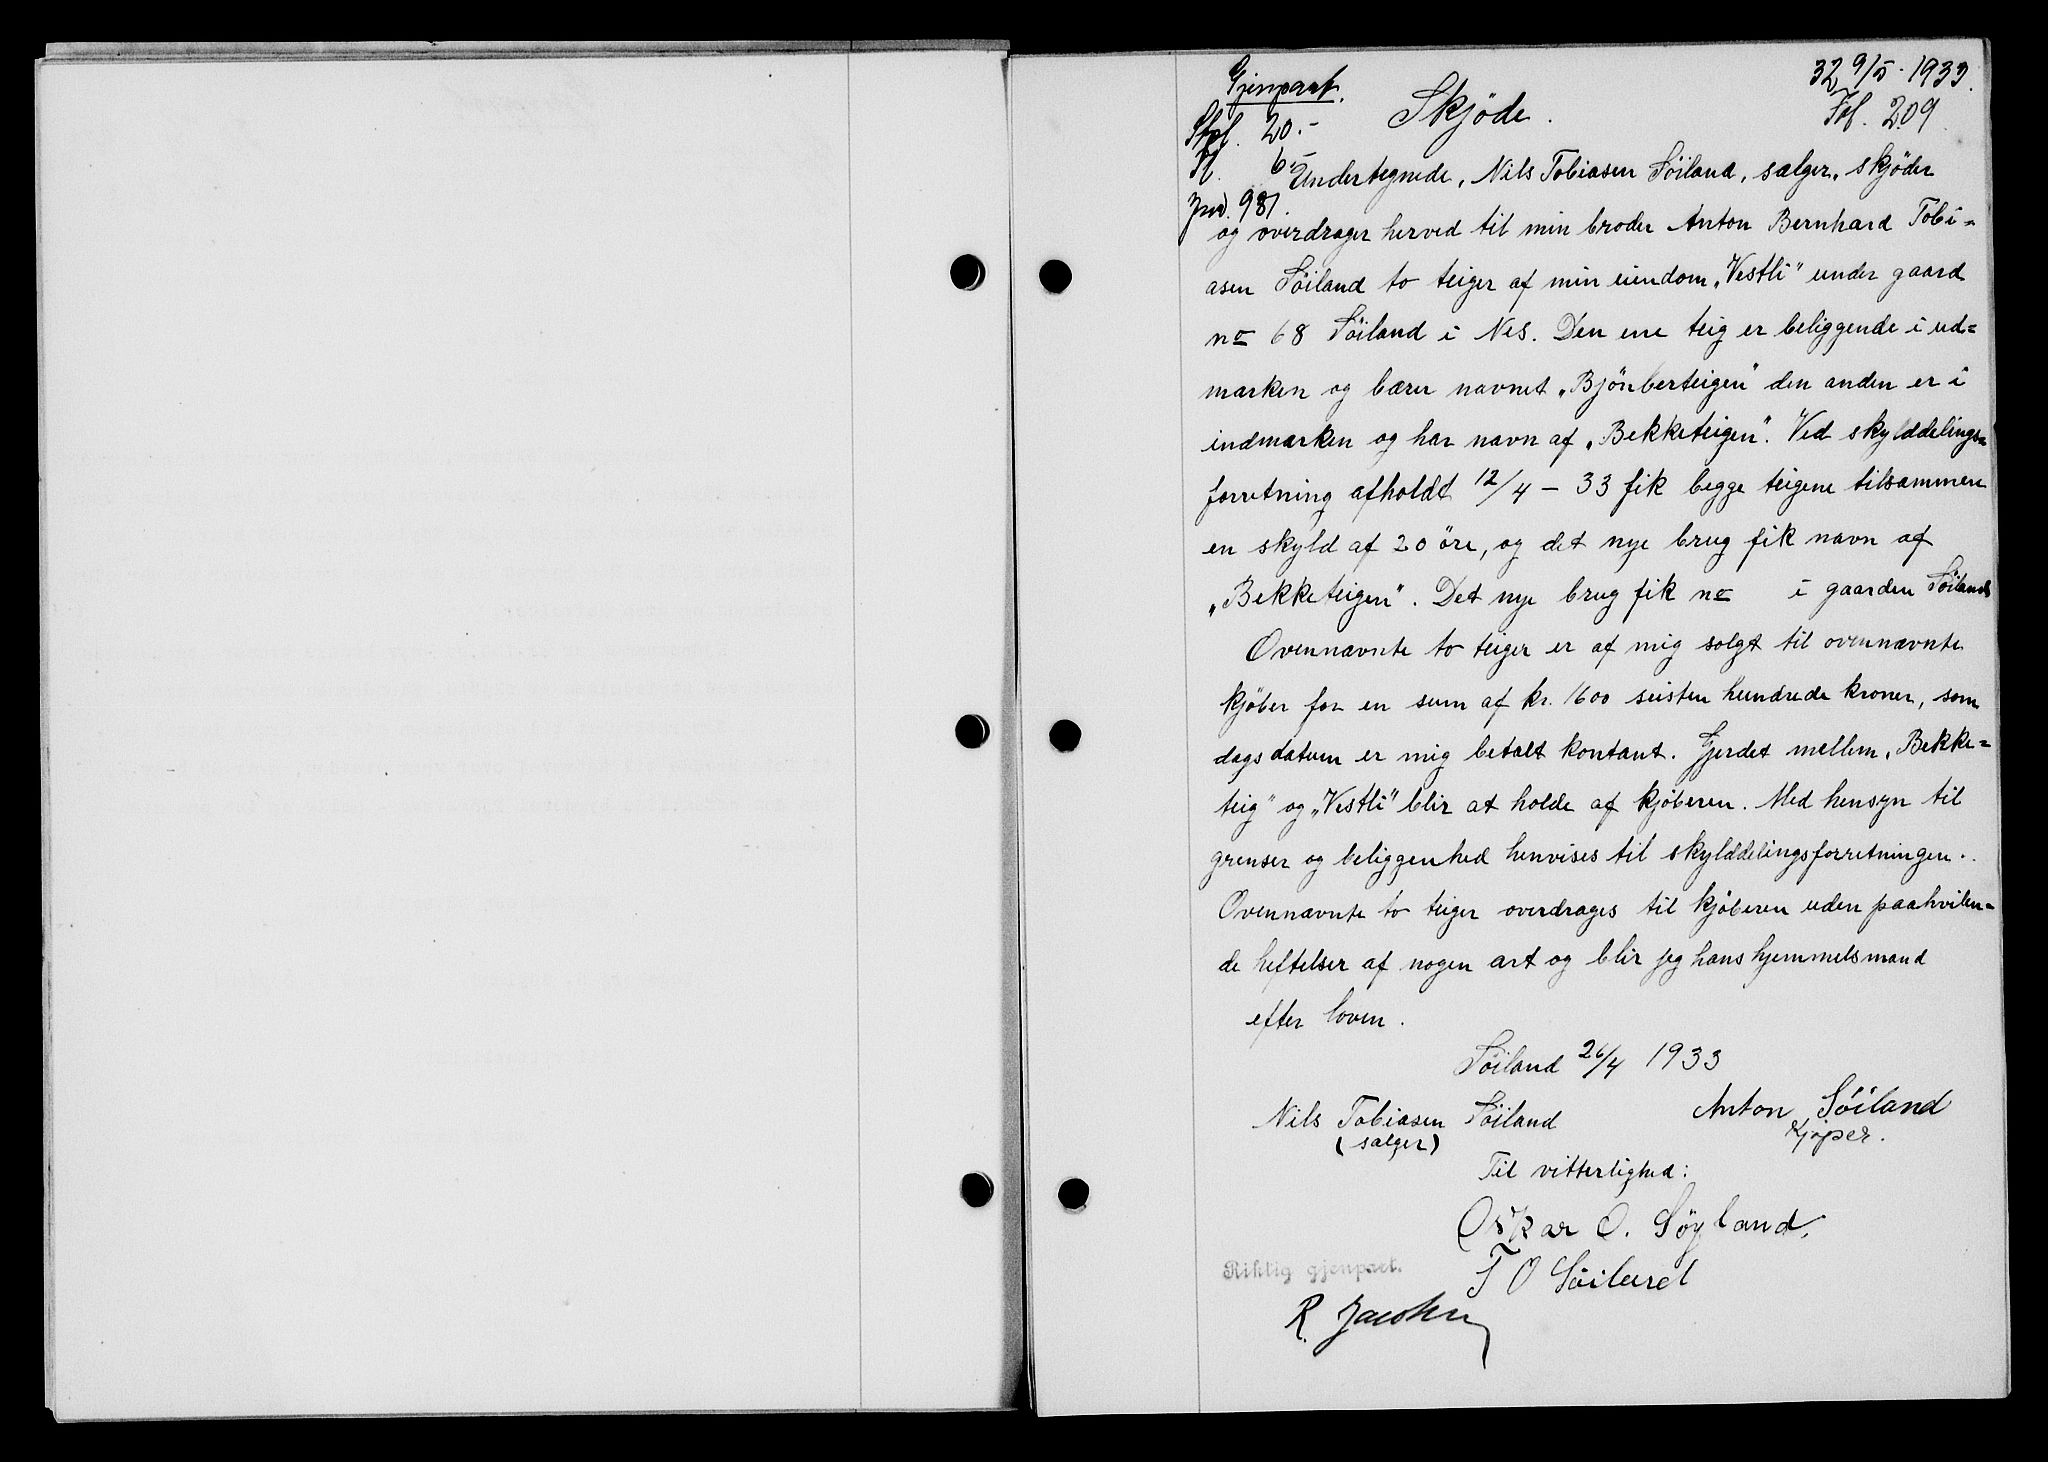 Gjenpart.
32 9/5. 1933.
Skjöde.
Fol. 209
Stpl. 20.-
6.-
Undertegnede, Nils Tobiasen Söiland, sælger, skjöder
Jno. 981.
og overdrager herved til min broder Anton Bernhard Tobi=
asen Söiland to teiger af min eiendom „Vestli" under gaard
no 68 Söiland i Nes. Den ene teig er beliggende i ud=
marken og bærer navnet „Bjönberteigen" den anden er i
indmarken og har navn af „Bekketeigen". Ved skylddelings=
forretning afholdt 12/4 - 33 fik begge teigene tilsammen
en skyld af 20 öre, og det nye brug fik navn af
„Bekketeigen". Det nye brug fik no i gaarden Söiland
Ovennævnte to teiger er af mig solgt til ovennævnte
kjöber for en sum af kr. 1600 seisten hundrede kroner, som
dags datum er mig betalt kontant. Gjerdet mellem „Bekke=
teig" og „Vestli" blir at holde af kjöberen. Med hensyn til
grenser og beliggenhed henvises til skylddelingsforretningen.
Ovennævnte to teiger overdrages til kjöberen uden paahvilen=
de heftelser af nogen art og blir jeg hans hjemmelsmand
efter loven.
Söiland 26/4 1933
Nils Tobiasen Söiland
(sælger)
Anton Söiland
Kjöper.
Til vitterlighed:
Oskar O. Söyland.
T O Söiland
Riktig gjenpart.
R. Jacobsen